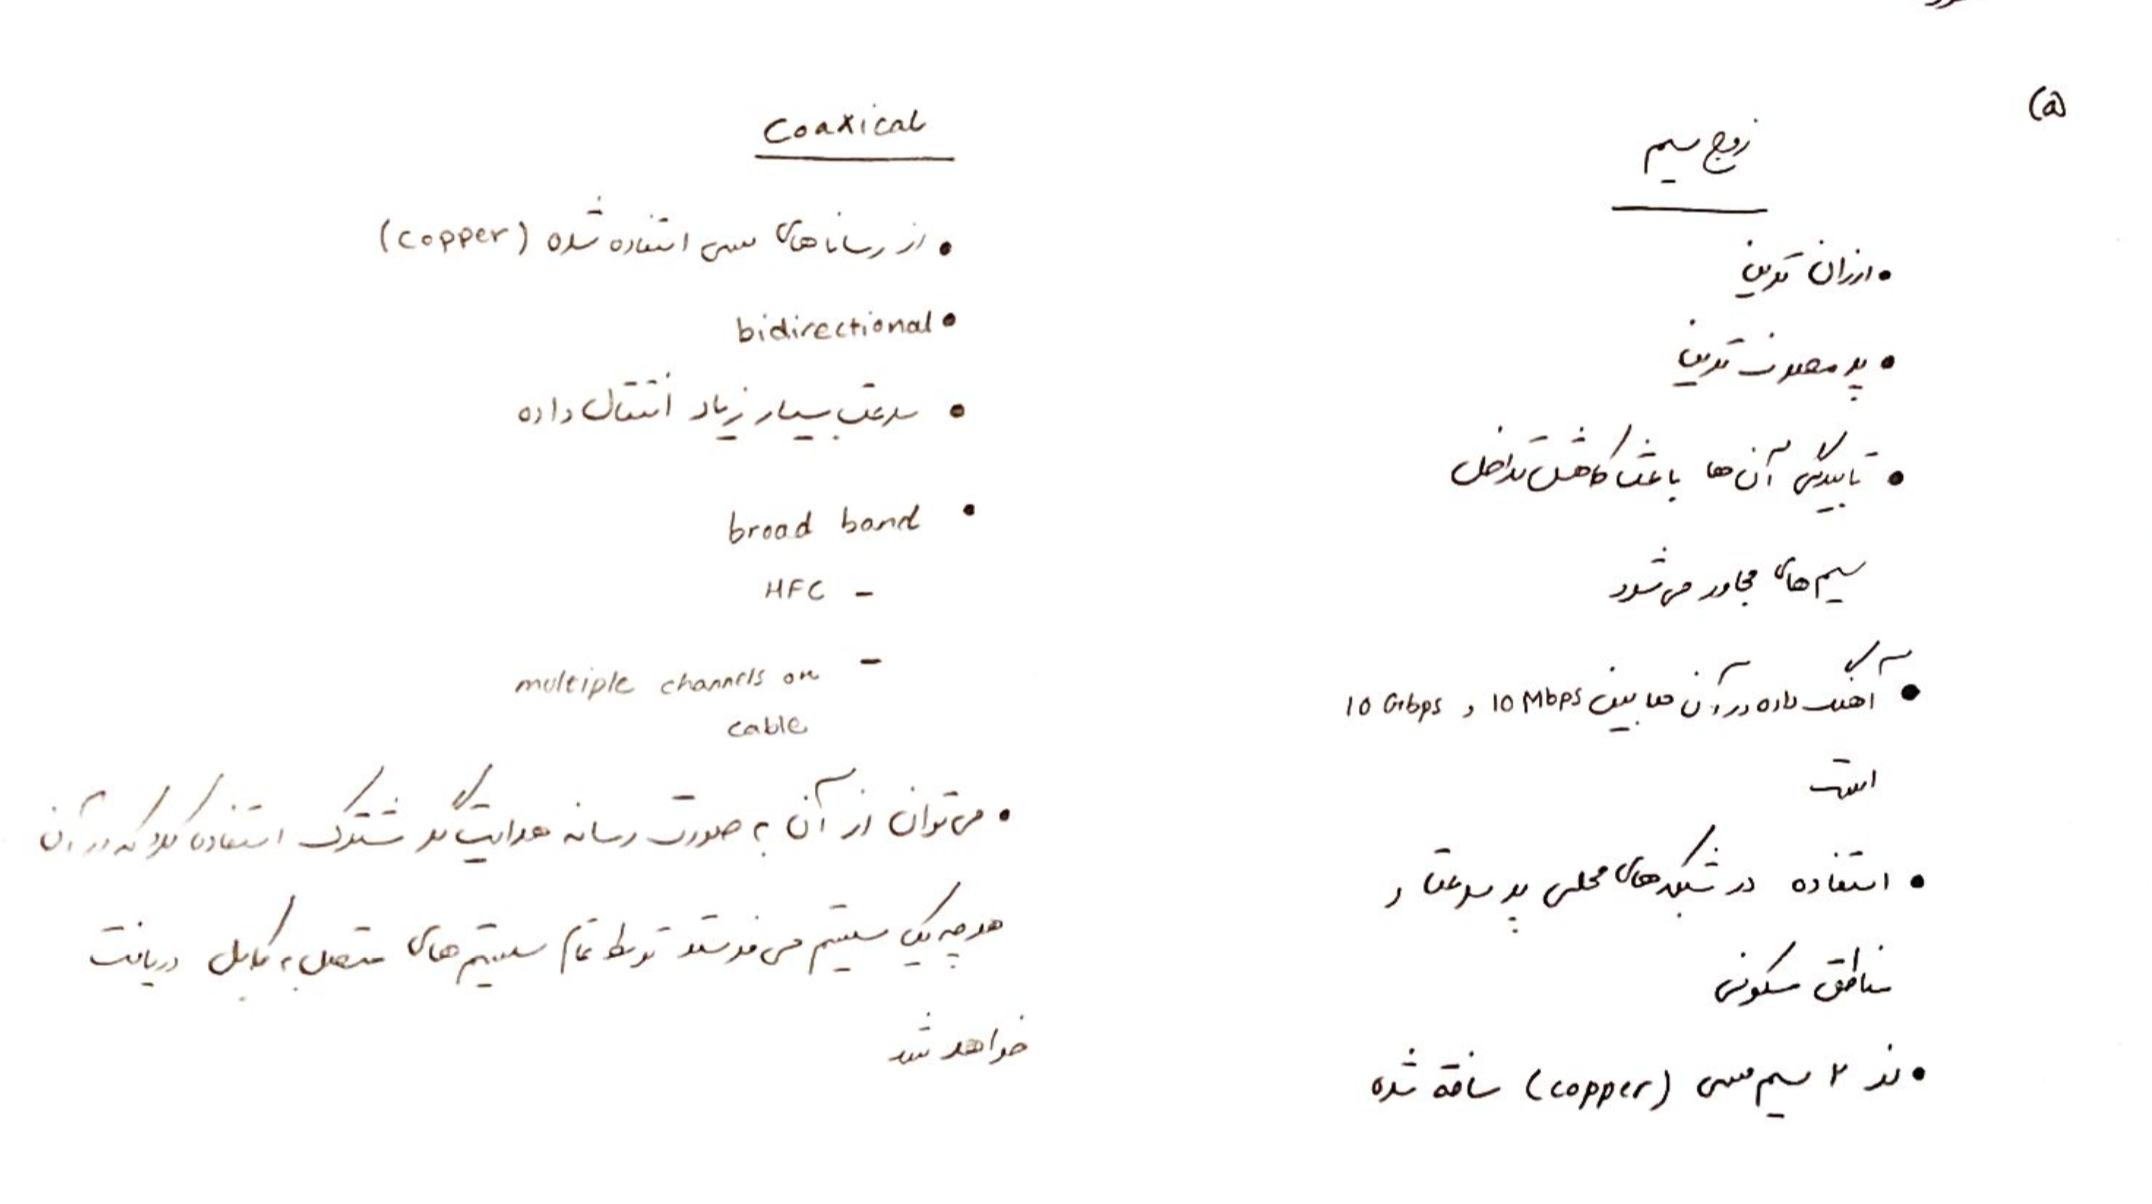 a)
زوج سیم
• ارزان ترین
• پر مصرف ترین
• تابیدگی آن ها باعث کاهش تداخل
سیم های مجاور می شود
• آهنگ داده در آن ها بین 10 Mbps و 10 Gbps
است
• استفاده در شبکه های محلی پر سرعت و
مناطق مسکونی
• از ۲ سیم مسی (copper) ساخته شده
Coaxical
• از رسانا های مسی استفاده شده (copper)
• bidirectional
• سرعت بسیار زیاد انتقال داده
• broad band
- HFC
- multiple channels on
cable
• می توان از آن به صورت رسانه هدایت گر مشترک استفاده کرد که در آن
هر چه یک سیستم می فرستد توسط تمام سیستم های متصل به کابل دریافت
خواهد شد